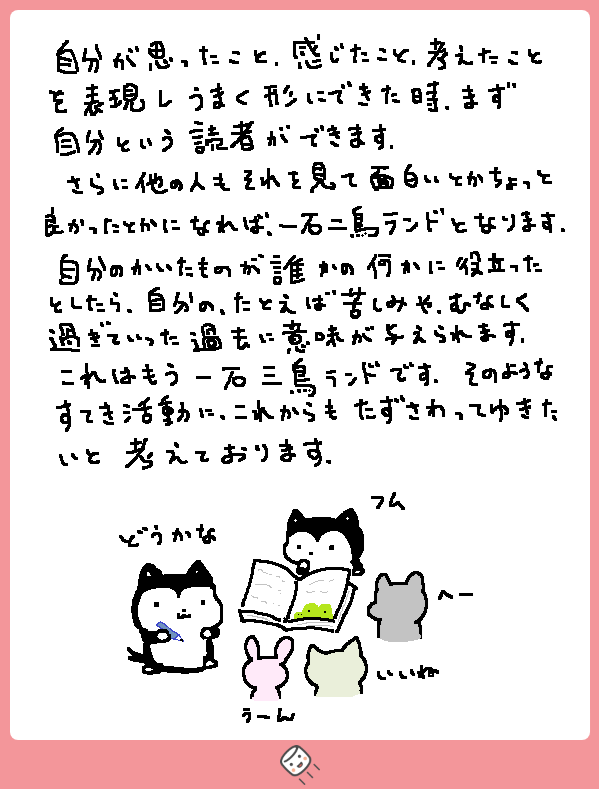 自分が思ったこと、感じたこと、考えたこと
を表現しうまく形にできた時、まず
自分という読者ができます。
さらに他の人もそれを見て面白いとかちょっと
良かったとかになれば、一石二鳥ランドとなります。
自分のかいたものが誰かの何かに役立った
としたら、自分の、たとえば苦しみや、むなしく
過ぎていった過去に意味が与えられます。
これはもう一石三鳥ランドです。そのような
すてき活動に、これからもたずさわってゆきた
いと考えております。
フム
どうかな
へー
いいね
うーん